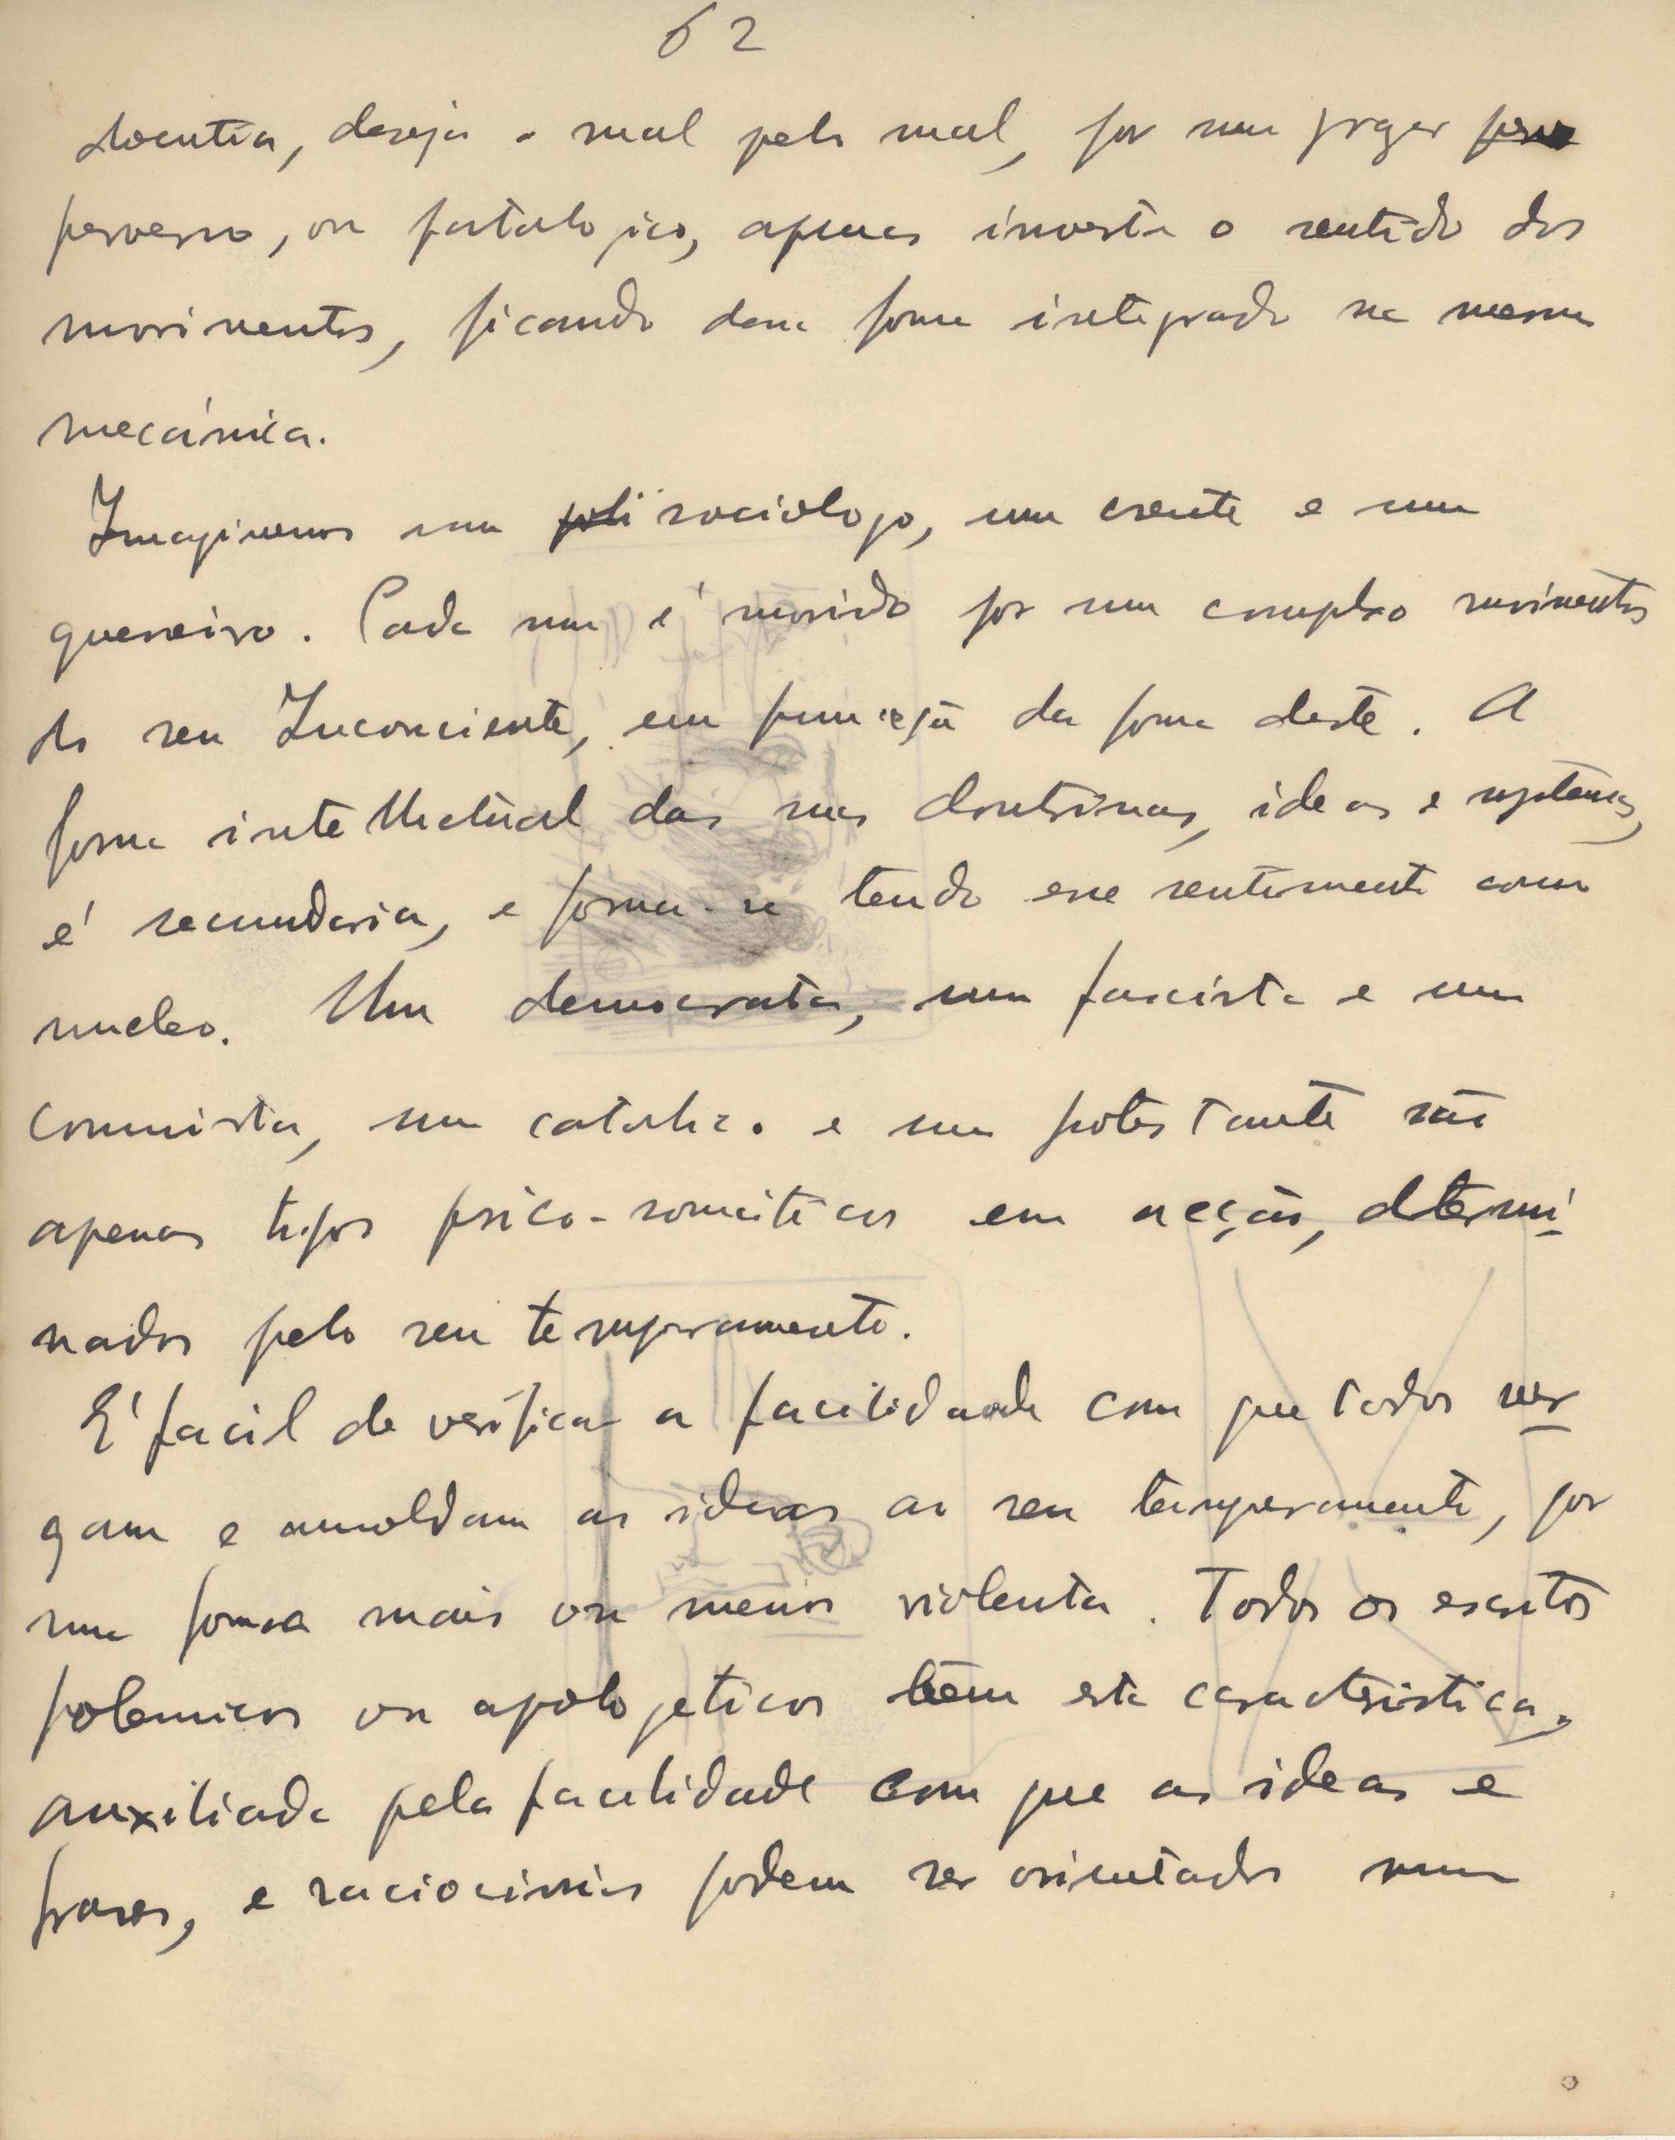 62
doentia, deseja o mal pelo mal, por um prazer perv
perverso, ou patologico, apenas inverte o sentido dos
movimentos, ficando dessa forma integrado na mesma
mecánica.
Imaginemos um poli sociologo, um crente e um
guerreiro. Cada um é movido por um complexo movimentos
do seu Inconciente, em funcção da forma deste. A
forma intellectual das suas doutrinas, ideas e systemas,
é secundaria, e forma-se tendo esse sentimento como
nucleo. Um democrata, um fascista e um
communista, um catolico e um protestante são
apenas tipos psico-somáticos em acção, determi
nados pelo seu temperamento.
E' facil de verificar a facilidade com que todos ver
gam e amoldam as ideas ao seu temperamento, por
uma forma mais ou menos violenta. Todos os escritos
polemicos ou apologeticos têem esta caracteristica,
auxiliada pela facilidade com que as ideas e
frases, e raciocinios podem ser orientados numa